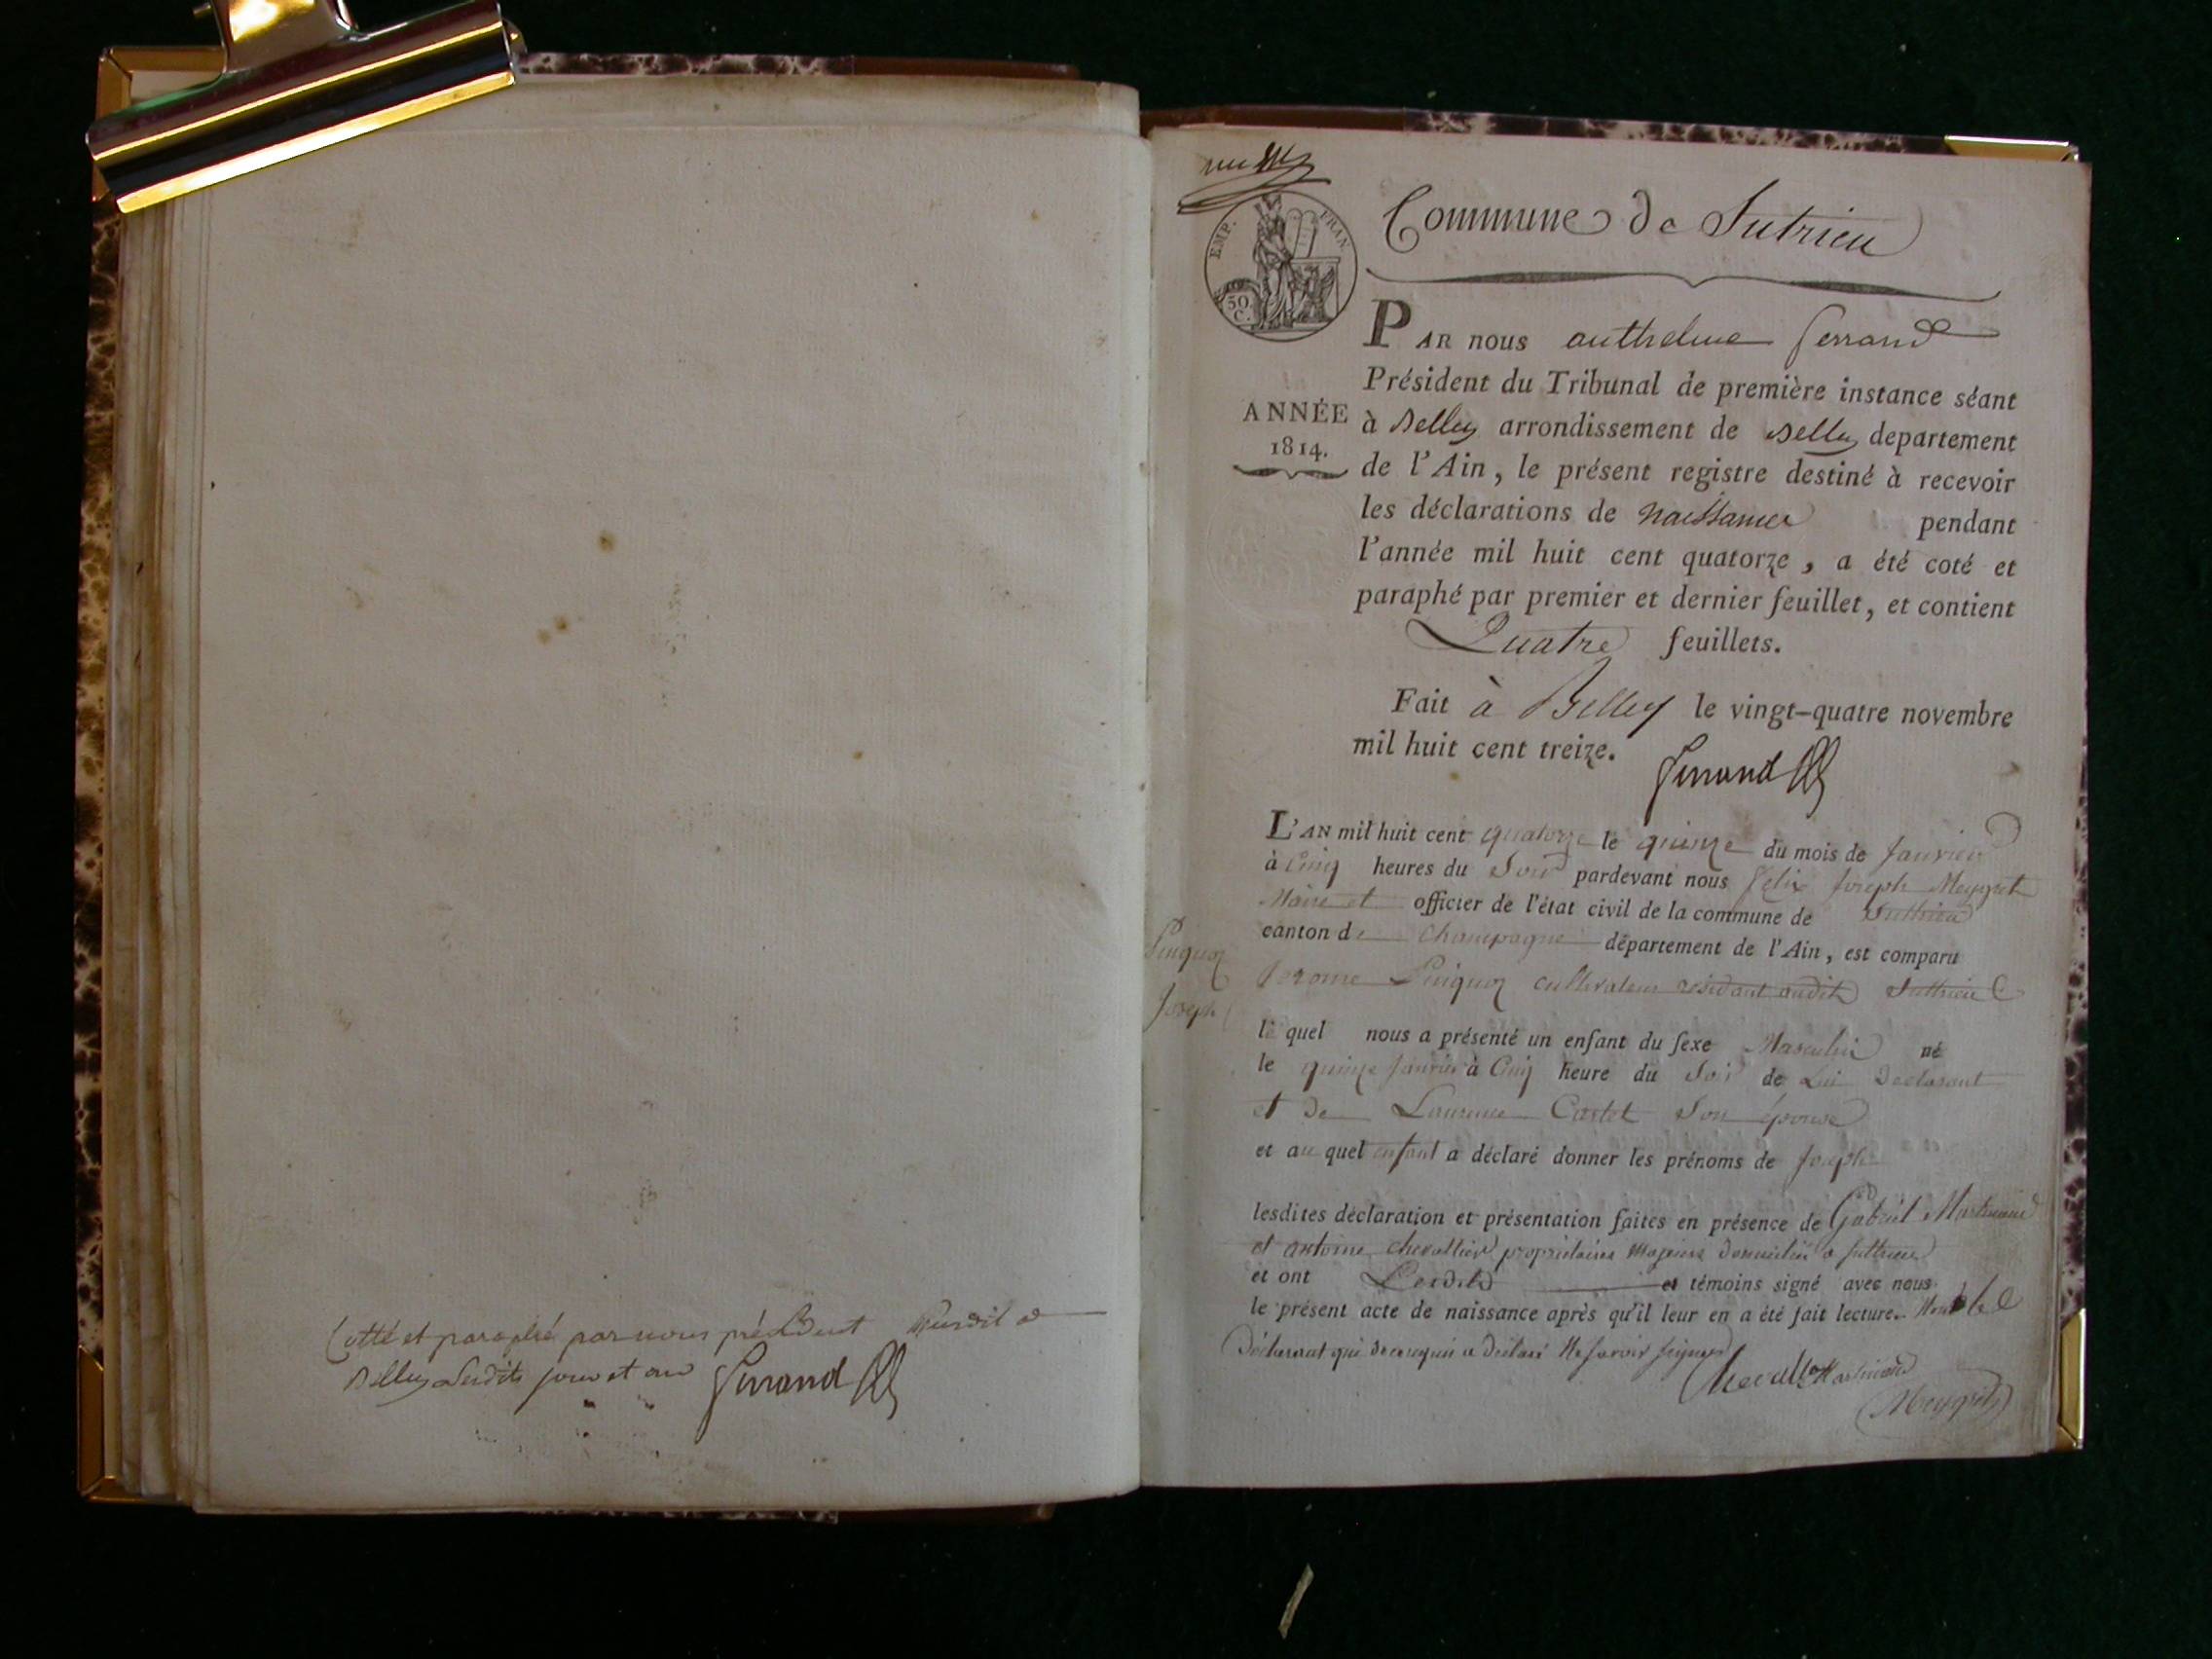 Cotté et paraphé par nous président susdit a
Belley lesdits jour et an Ferrand
EMP. FRAN.
50
C.
Commune de Sutrieu
PAR nous anthelme ferrand
Président du Tribunal de première instance séant
ANNÉE
1814.
à Belley arrondissement de Belley departement
de l'Ain, le présent registre destiné à recevoir
les déclarations de naissance pendant
l'année mil huit cent quatorze, a été coté et
paraphé par premier et dernier feuillet, et contient
Quatre feuillets.
Fait à Belley le vingt-quatre novembre
mil huit cent treize.
Ferrand
L'AN mil huit cent quatorze le quinze du mois de janvier
à cinq heures du Soir pardevant nous felix joseph Meygret
Maire et officier de l'état civil de la commune de Suttrieu
canton de Champagne département de l'Ain, est comparu
Pinquoz
Joseph
Jerome Pinquoz cultivateur résidant audit Suttrieu
le quel nous a présenté un enfant du sexe Masculin né
le quinze janvier à Cinq heure du Soir de Lui Declarant
et de Laurence Cartet Son épouse
et au quel enfant a déclaré donner les prénoms de joseph
lesdites déclaration et présentation faites en présence de Gabriel Martinand
et antoine chevallier propriétaires Majeurs domiciliés a suttrieu
et ont Lesdits et témoins signé avec nous
le présent acte de naissance après qu'il leur en a été fait lecture. Non le
Déclarant qui de ce requis a déclaré Ne savoir signer
Chevallier Martinand
Meygret